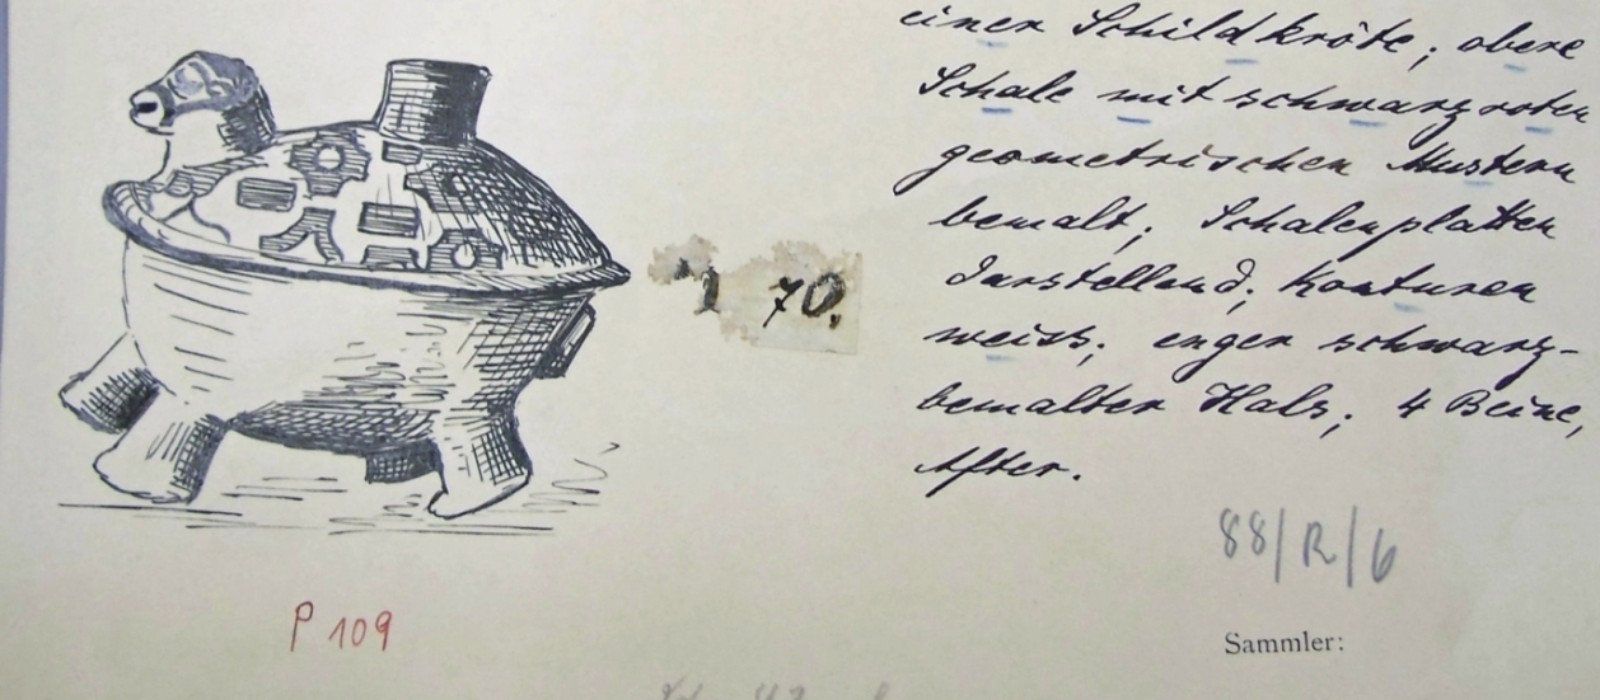 einer Schildkröte; obere
Schale mit schwarzroten
geometrischen Mustern
bemalt; Schalenplatten
darstellend; Konturen
weiss; enger schwarz-
bemalter Hals; 4 Beine,
After.
70.
88/R/6
P 109
Sammler: